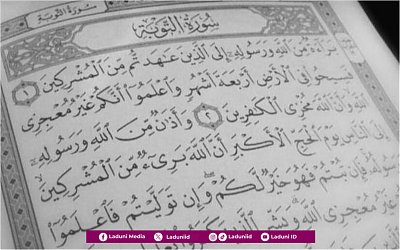 سُورَةُ التَّوْبَةِ
سُورَةُ التَّوْبَةِ
بَرَآءَةٌ مِّنَ ٱللَّهِ وَرَسُولِهِۦٓ إِلَى ٱلَّذِينَ عَٰهَدتُّم مِّنَ ٱلْمُشْرِكِينَ ١
فَسِيحُوا۟ فِى ٱلْأَرْضِ أَرْبَعَةَ أَشْهُرٍ وَٱعْلَمُوٓا۟ أَنَّكُمْ غَيْرُ مُعْجِزِى
ٱللَّهِ وَأَنَّ ٱللَّهَ مُخْزِى ٱلْكَٰفِرِينَ ٢ وَأَذَٰنٌ مِّنَ ٱللَّهِ وَرَسُولِهِۦٓ
إِلَى ٱلنَّاسِ يَوْمَ ٱلْحَجِّ ٱلْأَكْبَرِ أَنَّ ٱللَّهَ بَرِىٓءٌ مِّنَ ٱلْمُشْرِكِينَ
وَرَسُولُهُۥ فَإِن تُبْتُمْ فَهُوَ خَيْرٌ لَّكُمْ وَإِن تَوَلَّيْتُمْ فَٱعْلَمُوٓا۟
أَنَّكُمْ غَيْرُ مُعْجِزِى ٱللَّهِ وَبَشِّرِ ٱلَّذِينَ كَفَرُوا۟
Laduni Media Laduniid Laduniid Laduni ID